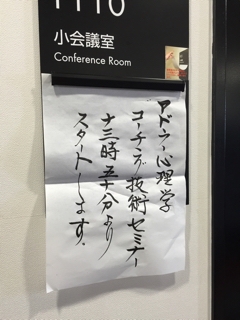 1110
小会議室
Conference Room
アドラー心理学
コーチング技術セミナー
十三時五十分より
スタートします。